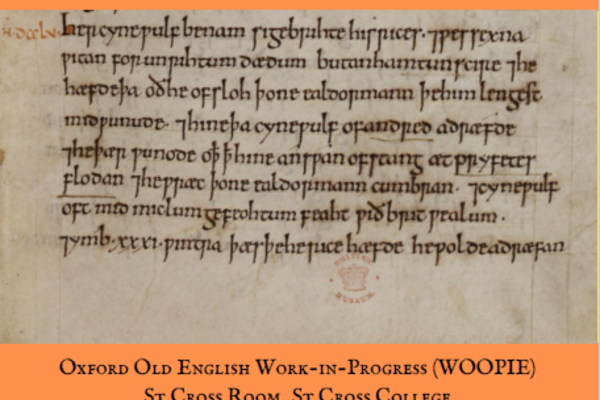 Her cyneƿulf benam sigebrihte his rices. ⁊ƿessexna
ƿitan for unrihtum dædum butan hamtunscire ⁊he
hæfde þa oðhe ofsloh þone ealdormann þe him lengest
midƿunude. ⁊hine þa cyneƿulf andred adræfde
⁊he þær ƿunode oþ þ hine an sƿan ofstang æt pryfetes
flodan ⁊he ƿræc þone ealdormann cumbran. ⁊cyneƿulf
oft mid miclum gefeohtum feaht ƿið brit ƿealum.
⁊ymb .xxxi. ƿintra þæs þe he rice hæfde he ƿolde adræfan
MUSEUM
Oxford Old English Work-in-Progress (WOOPIE)
St Cross Room, St Cross College